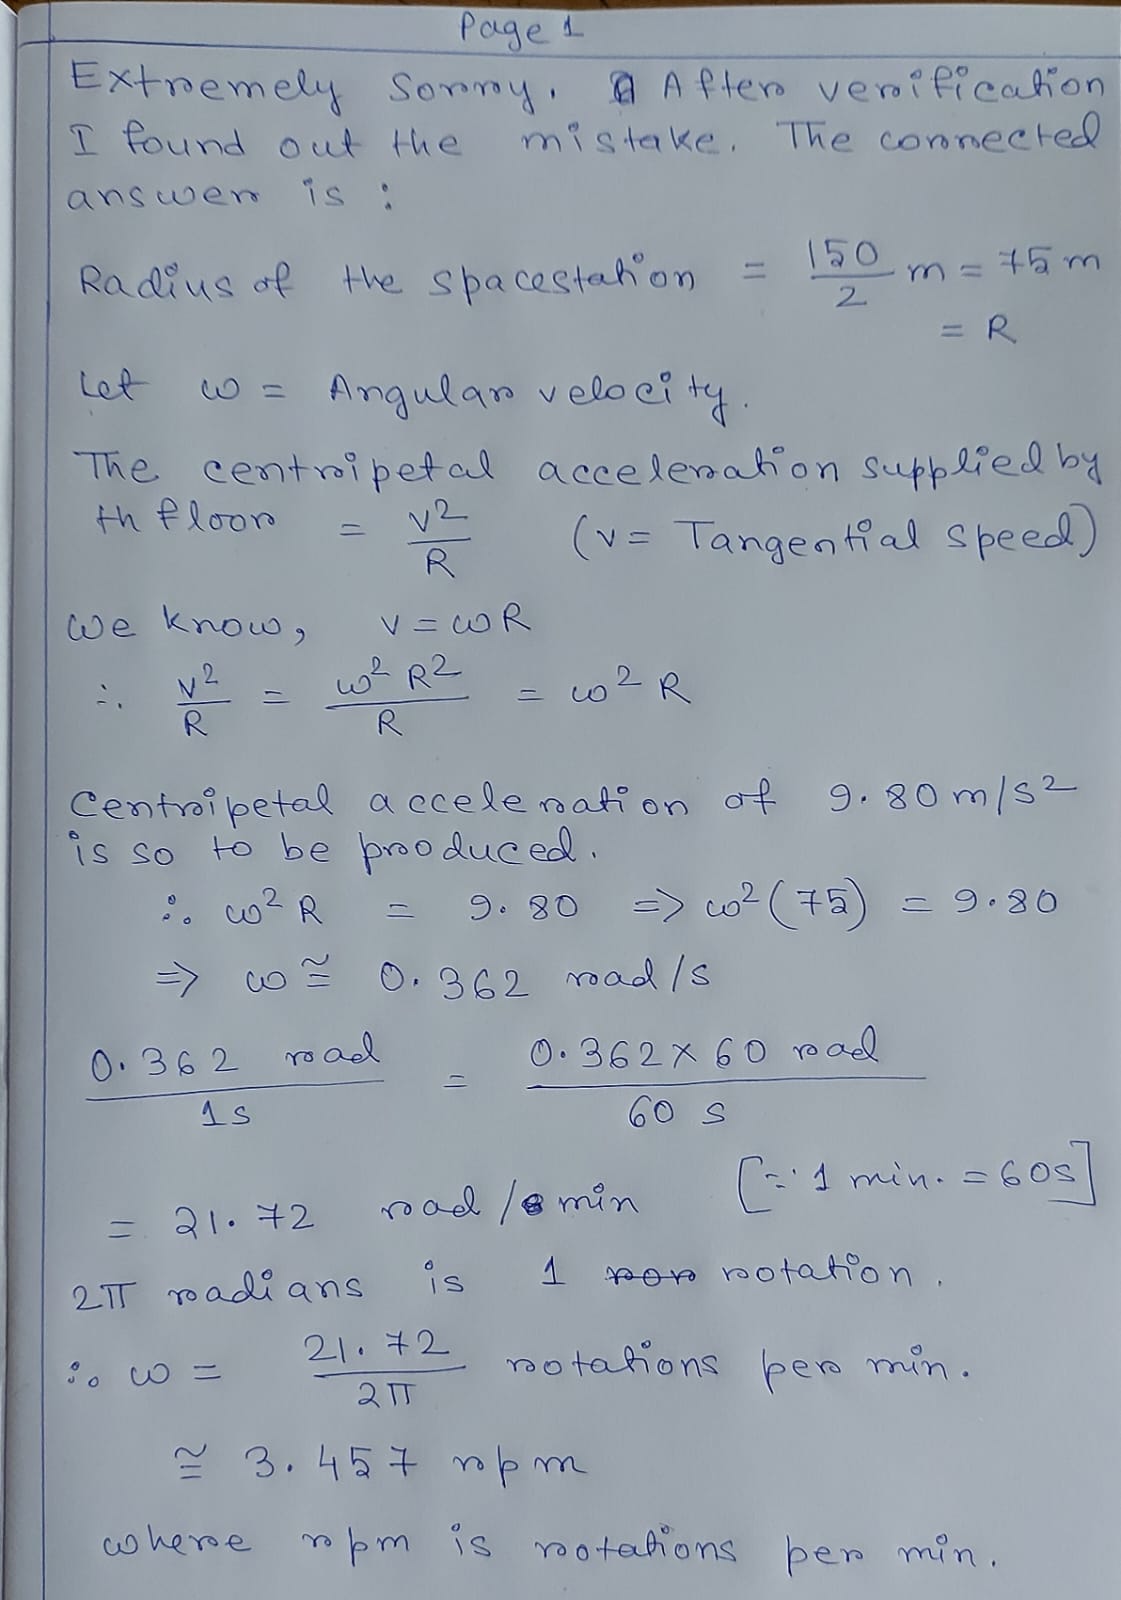 Page 1
Extremely sorry. After verification
I found out the mistake. The corrected
answer is :
Radius of the spacestation = 150/2 m = 75 m
= R
Let ω = Angular velocity.
The centripetal acceleration supplied by
th floor = v²/R (v = Tangential speed)
We know, v = ωR
∴ v²/R = ω²R²/R = ω²R
Centripetal acceleration of 9.80 m/s²
is so to be produced.
∴ ω²R = 9.80 => ω²(75) = 9.80
=> ω ≅ 0.362 rad/s
0.362 rad/1s = 0.362 × 60 rad/60 s
= 21.72 rad/min [∵ 1 min. = 60s]
2π radians is 1 rotation.
∴ ω = 21.72/2π rotations per min.
≅ 3.457 rpm
where rpm is rotations per min.